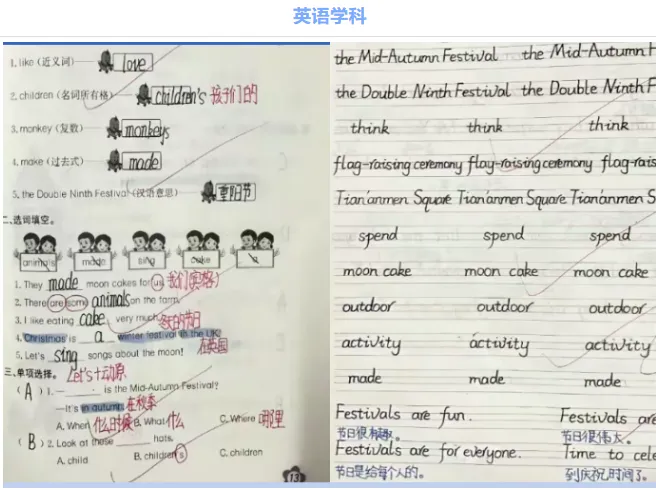 英语学科
1. like（近义词） love
2. children（名词所有格） children's 孩子们的
3. monkey（复数） monkeys
4. make（过去式） made
5. the Double Ninth Festival（汉语意思） 重阳节
二、选词填空。
animals made sing cake a
1. They made moon cakes for us. 我们(宾格)
2. There are some animals on the farm.
3. I like eating cake very much. 冬的节日
4. Christmas is a winter festival in the UK. 在英国
5. Let's sing songs about the moon! Let's+动原
三、单项选择。
( A ) 1. — is the Mid-Autumn Festival?
—It's in autumn. 在秋季
A. When 什么时候 B. What 什么 C. Where 哪里
( B ) 2. Look at these hats.
A. child B. children's C. children
13
the Mid-Autumn Festival the Mid-Autumn F
the Double Ninth Festival the Double Ninth F
think think think
flag-raising ceremony flag-raising ceremony flag-rais
Tian'anmen Square Tian'anmen Square Tian'anmen S
spend spend spend
moon cake moon cake moon cake
outdoor outdoor outdoor
activity activity activity
made made made
Festivals are fun. Festivals are
节日很有趣。 节日很伟大。
Festivals are for everyone. Time to cele
节日是给每个人的。 到庆祝时间了。